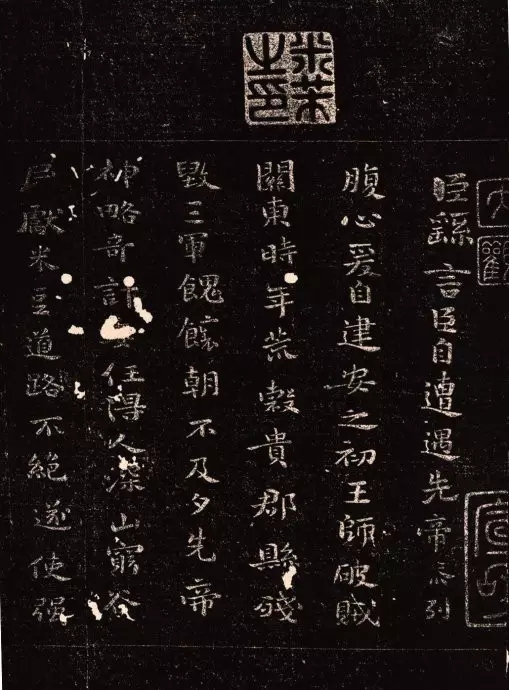 米芾之印
大觀
臣繇言臣自遭遇先帝忝列
腹心爰自建安之初王師破賊
關東時年荒榖貴郡縣殘
毀三軍餽饟朝不及夕先帝
神略奇計任得人深山窮谷
民獻米豆道路不絕遂使强